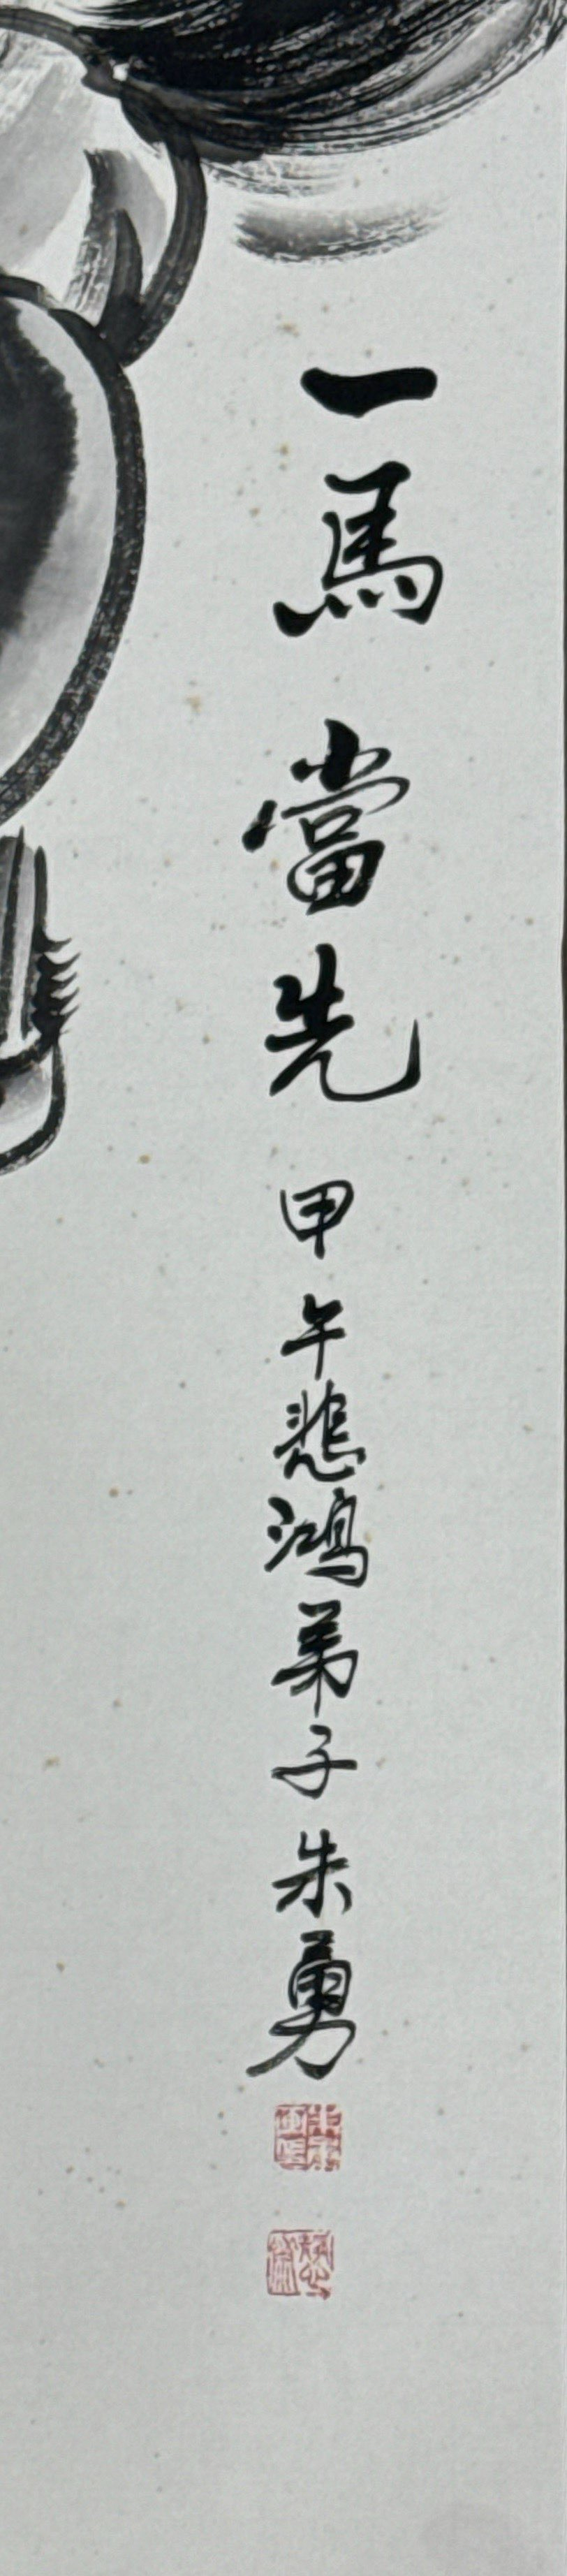 一馬當先 甲午悲鴻弟子朱勇